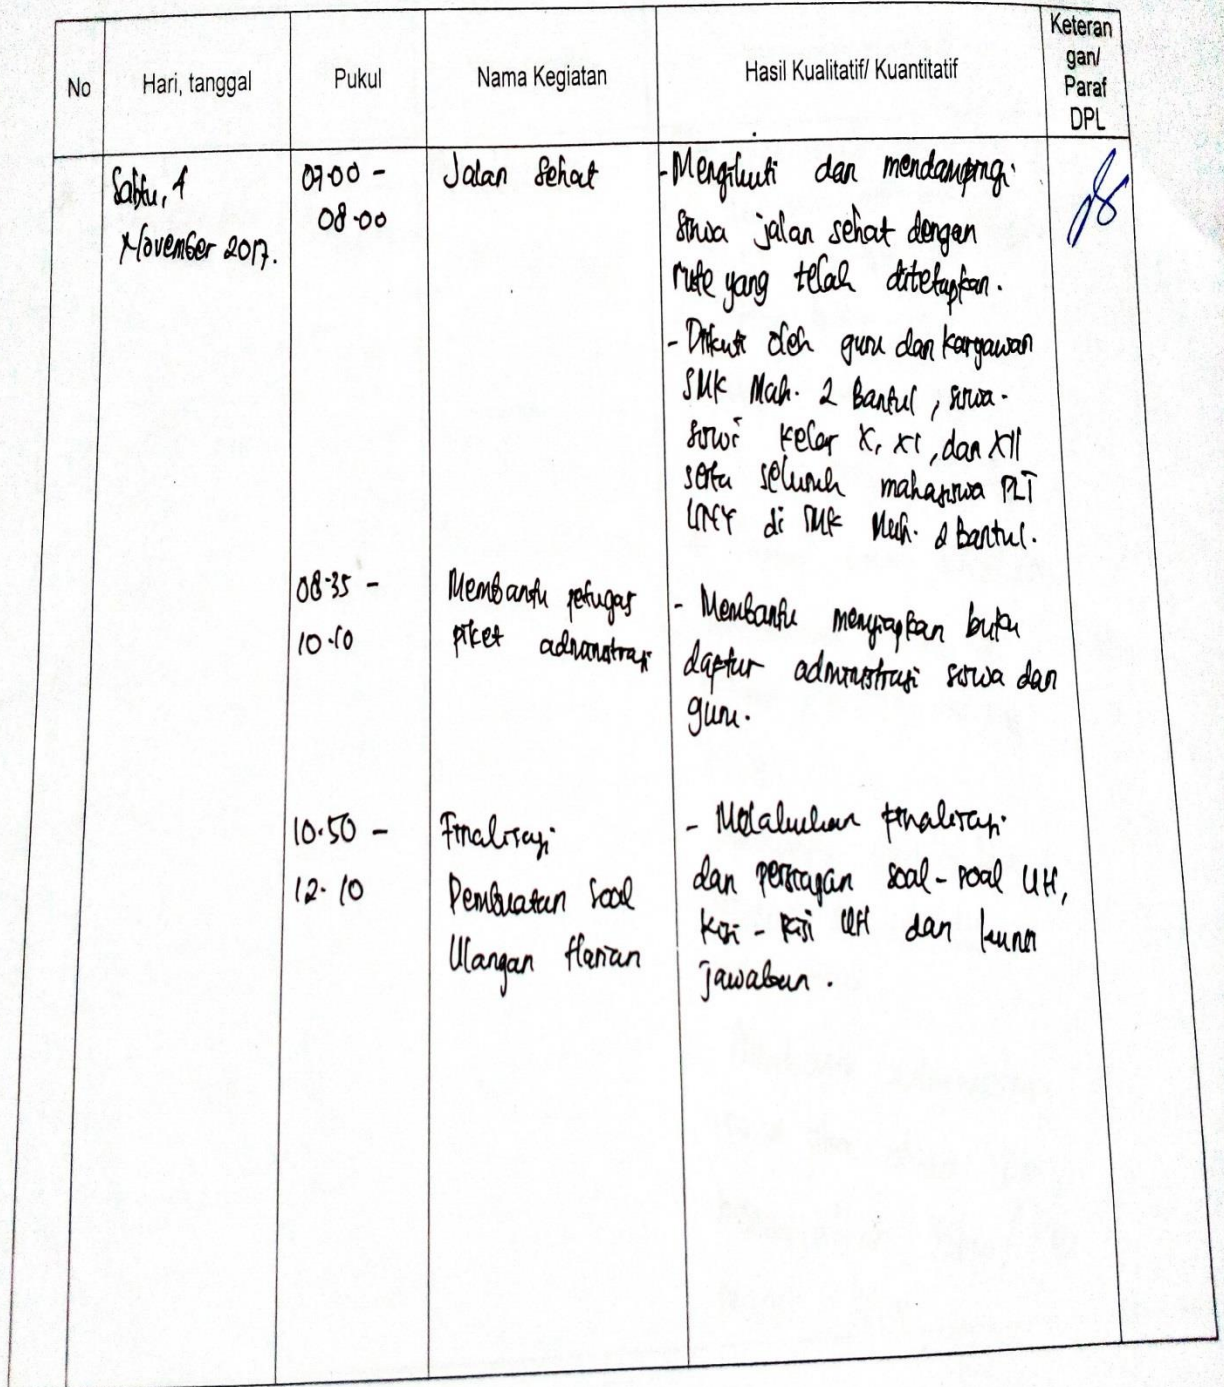 No
Hari, tanggal
Pukul
Nama Kegiatan
Hasil Kualitatif/ Kuantitatif
Keteran
gan/
Paraf
DPL
Sabtu, 4
November 2017.
07.00 -
08.00
Jalan Sehat
- Mengikuti dan mendampingi
siswa jalan sehat dengan
rute yang telah ditetapkan.
- Diikuti oleh guru dan karyawan
SMK Muh. 2 Bantul, siswa-
siswi kelas X, XI, dan XII
serta seluruh mahasiswa PLT
UNY di SMK Muh. 2 Bantul.
08.35 -
10.10
Membantu petugas
piket administrasi
- Membantu menyiapkan buku
daftar administrasi siswa dan
guru.
10.50 -
12.10
Finalisasi
Pembuatan Soal
Ulangan Harian
- Melakukan finalisasi
dan persiapan soal-soal UH,
kisi-kisi UH dan kunci
jawaban.